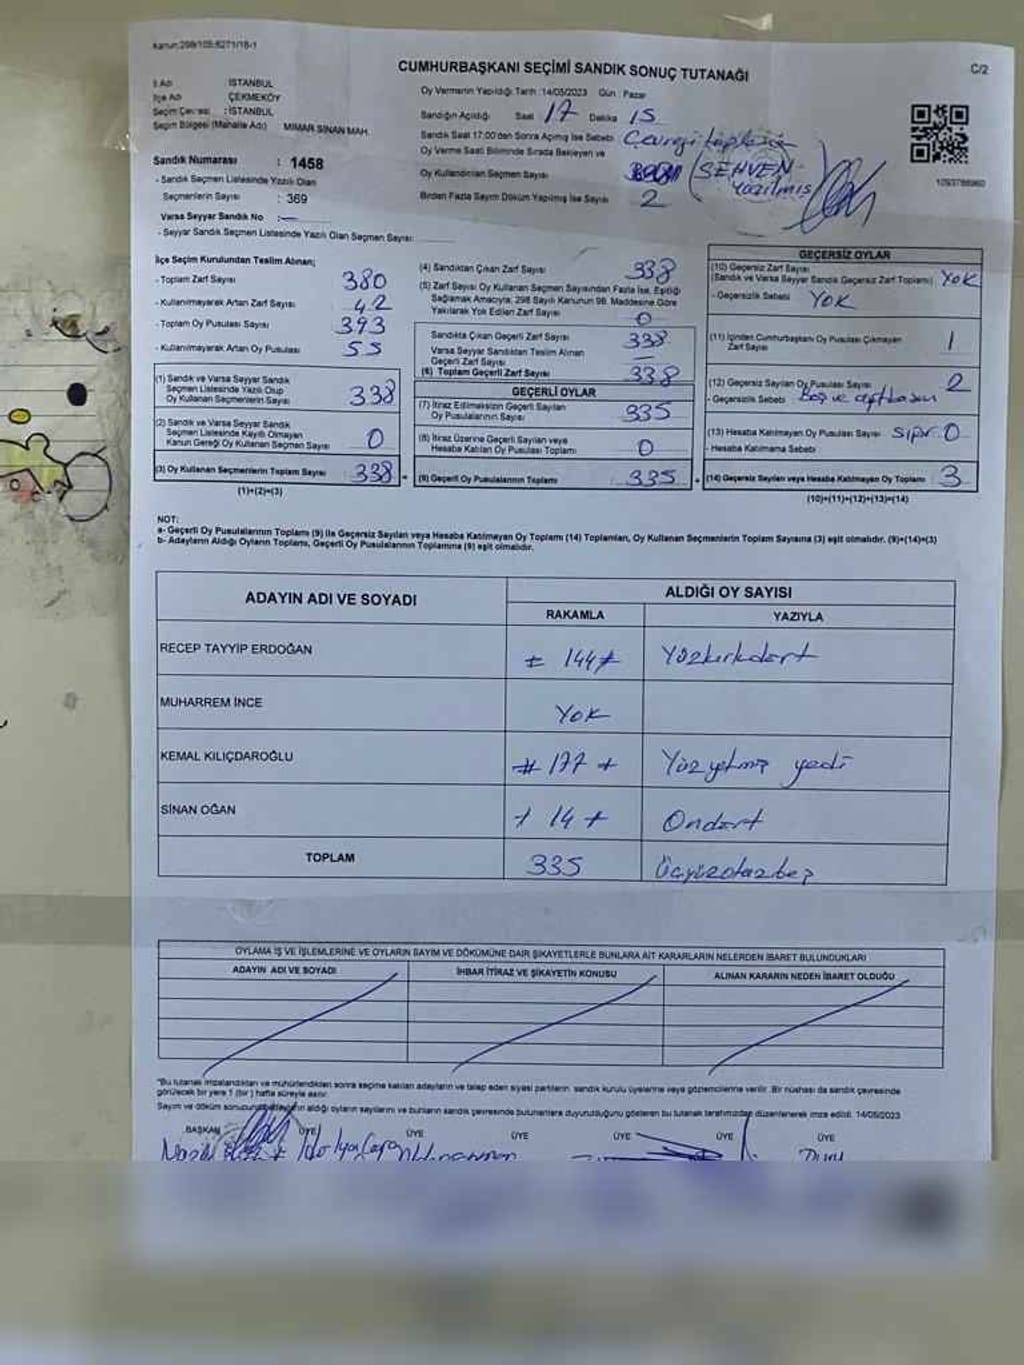 Kanun:298/105;6271/18-1
CUMHURBAŞKANI SEÇİMİ SANDIK SONUÇ TUTANAĞI
C/2
İl Adı : İSTANBUL
İlçe Adı : ÇEKMEKÖY
Seçim Çevresi : İSTANBUL
Seçim Bölgesi (Mahalle Adı) MİMAR SİNAN MAH.
Sandık Numarası : 1458
- Sandık Seçmen Listesinde Yazılı Olan
Seçmenlerin Sayısı : 369
Varsa Seyyar Sandık No :
- Seyyar Sandık Seçmen Listesinde Yazılı Olan Seçmen Sayısı:
Oy Vermenin Yapıldığı Tarih :14/05/2023 Gün : Pazar
Sandığın Açıldığı Saat 17 Dakika 15
Sandık Saat 17:00'den Sonra Açılmış İse Sebebi
Oy Verme Saati Bitiminde Sırada Bekleyen ve
Oy Kullandırılan Seçmen Sayısı (SEHVEN yazılmış
Birden Fazla Sayım Döküm Yapılmış İse Sayısı 2
1093788960
İlçe Seçim Kurulundan Teslim Alınan;
- Toplam Zarf Sayısı 380
- Kullanılmayarak Artan Zarf Sayısı 42
- Toplam Oy Pusulası Sayısı 393
- Kullanılmayarak Artan Oy Pusulası 55
(1) Sandık ve Varsa Seyyar Sandık
Seçmen Listesinde Yazılı Olup
Oy Kullanan Seçmenlerin Sayısı 338
(2) Sandık ve Varsa Seyyar Sandık
Seçmen Listesinde Kayıtlı Olmayan
Kanun Gereği Oy Kullanan Seçmen Sayısı 0
(3) Oy Kullanan Seçmenlerin Toplam Sayısı 338 =
(1)+(2)=(3)
(4) Sandıktan Çıkan Zarf Sayısı 338
(5) Zarf Sayısı Oy Kullanan Seçmen Sayısından Fazla İse, Eşitliği
Sağlamak Amacıyla, 298 Sayılı Kanunun 98. Maddesine Göre
Yakılarak Yok Edilen Zarf Sayısı 0
Sandıkta Çıkan Geçerli Zarf Sayısı 338
Varsa Seyyar Sandıktan Teslim Alınan
Geçerli Zarf Sayısı —
(6) Toplam Geçerli Zarf Sayısı 338
GEÇERLİ OYLAR
(7) İtiraz Edilmeksizin Geçerli Sayılan
Oy Pusulalarının Sayısı 335
(8) İtiraz Üzerine Geçerli Sayılan veya
Hesaba Katılan Oy Pusulası Toplamı 0
(9) Geçerli Oy Pusulalarının Toplamı 335 +
GEÇERSİZ OYLAR
(10) Geçersiz Zarf Sayısı
(Sandık ve Varsa Seyyar Sandık Geçersiz Zarf Toplamı) YOK
- Geçersizlik Sebebi YOK
(11) İçinden Cumhurbaşkanı Oy Pusulası Çıkmayan
Zarf Sayısı 1
(12) Geçersiz Sayılan Oy Pusulası Sayısı 2
- Geçersizlik Sebebi Boş ve
(13) Hesaba Katılmayan Oy Pusulası Sayısı 0
- Hesaba Katılmama Sebebi
(14) Geçersiz Sayılan veya Hesaba Katılmayan Oy Toplamı 3
(10)+(11)+(12)+(13)=(14)
NOT:
a- Geçerli Oy Pusulalarının Toplamı (9) ile Geçersiz Sayılan veya Hesaba Katılmayan Oy Toplamı (14) Toplamları, Oy Kullanan Seçmenlerin Toplam Sayısına (3) eşit olmalıdır. (9)+(14)=(3)
b- Adayların Aldığı Oyların Toplamı, Geçerli Oy Pusulalarının Toplamına (9) eşit olmalıdır.
ADAYIN ADI VE SOYADI
ALDIĞI OY SAYISI
RAKAMLA YAZIYLA
RECEP TAYYİP ERDOĞAN 144 Yüzkırkdört
MUHARREM İNCE YOK
KEMAL KILIÇDAROĞLU 177 Yüzyetmiş yedi
SİNAN OĞAN 14 Ondört
TOPLAM 335 Üçyüzotuzbeş
OYLAMA İŞ VE İŞLEMLERİNE VE OYLARIN SAYIM VE DÖKÜMÜNE DAİR ŞİKAYETLERLE BUNLARA AİT KARARLARIN NELERDEN İBARET BULUNDUKLARI
ADAYIN ADI VE SOYADI İHBAR İTİRAZ VE ŞİKAYETİN KONUSU ALINAN KARARIN NEDEN İBARET OLDUĞU
"Bu tutanak imzalandıktan ve mühürlendikten sonra seçime katılan adayların ve talep eden siyasi partilerin, sandık kurulu üyelerine veya gözlemcilerine verilir. Bir nüshası da sandık çevresinde
görülecek bir yere 1 (bir) hafta süreyle asılır.
Sayım ve döküm sonucunda adayların aldığı oyların sayılarını ve bunların sandık çevresinde bulunanlara duyurulduğunu gösteren bu tutanak tarafımızdan düzenlenerek imza edildi. 14/05/2023
BAŞKAN ÜYE ÜYE ÜYE ÜYE ÜYE ÜYE